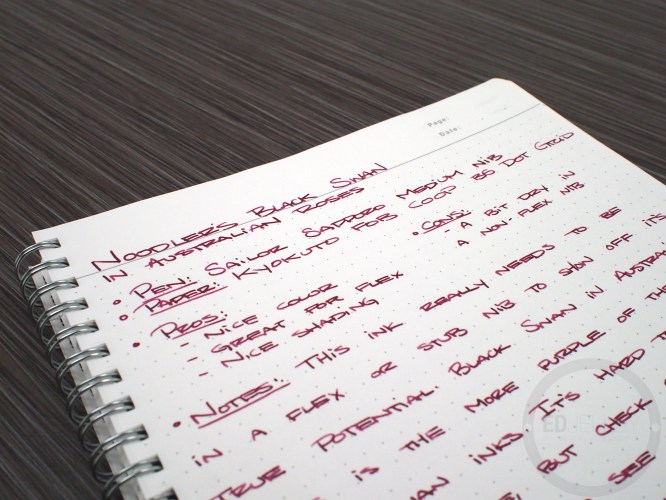 Page:
Date:
NOODLER'S BLACK SWAN
IN AUSTRALIAN ROSES
• PEN: SAILOR SAPPORO MEDIUM NIB
• PAPER: KYOKUTO FOB COOP B6 DOT GRID
• PROS:
- NICE COLOR
- GREAT FOR FLEX
- NICE SHADING
• CONS:
- A BIT DRY IN
A NON-FLEX NIB
• NOTES: THIS INK REALLY NEEDS TO BE
IN A FLEX OR STUB NIB TO SHOW OFF IT'S
TRUE POTENTIAL. BLACK SWAN IN
IS THE MORE PURPLE OF THE
INKS. IT'S HARD
BUT CHECK
SEE
ED